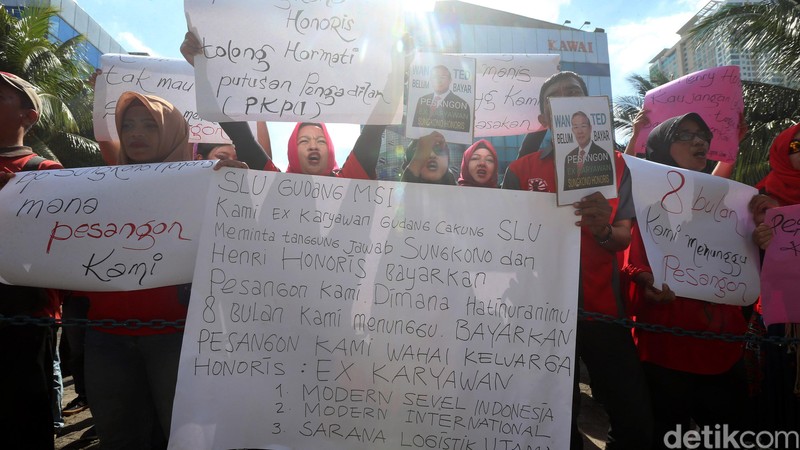 HONORIS
tolong Hormati
putusan Pengadilan
(PKPU)
KAWAI
tak mau
WANTED
BELUM BAYAR
PESANGON
SUNGKONO HONORIS
WANTED
BELUM BAYAR
PESANGON
SUNGKONO HONORIS
mana
pesangon
Kami
SLU GUDANG MSI
KAMI EX KARYAWAN GUDANG CAKUNG SLU
MEMINTA TANGGUNG JAWAB SUNGKONO DAN
HENRI HONORIS BAYARKAN
PESANGON KAMI. DIMANA HATINURANIMU
8 BULAN KAMI MENUNGGU. BAYARKAN
PESANGON KAMI WAHAI KELWARGA
HONORIS : EX KARYAWAN
1. MODERN SEVEL INDONESIA
2. MODERN INTERNATIONAL
3. SARANA LOGISTIK UTAMA
8 bulan
Kami menunggu
Pesangon
detikcom